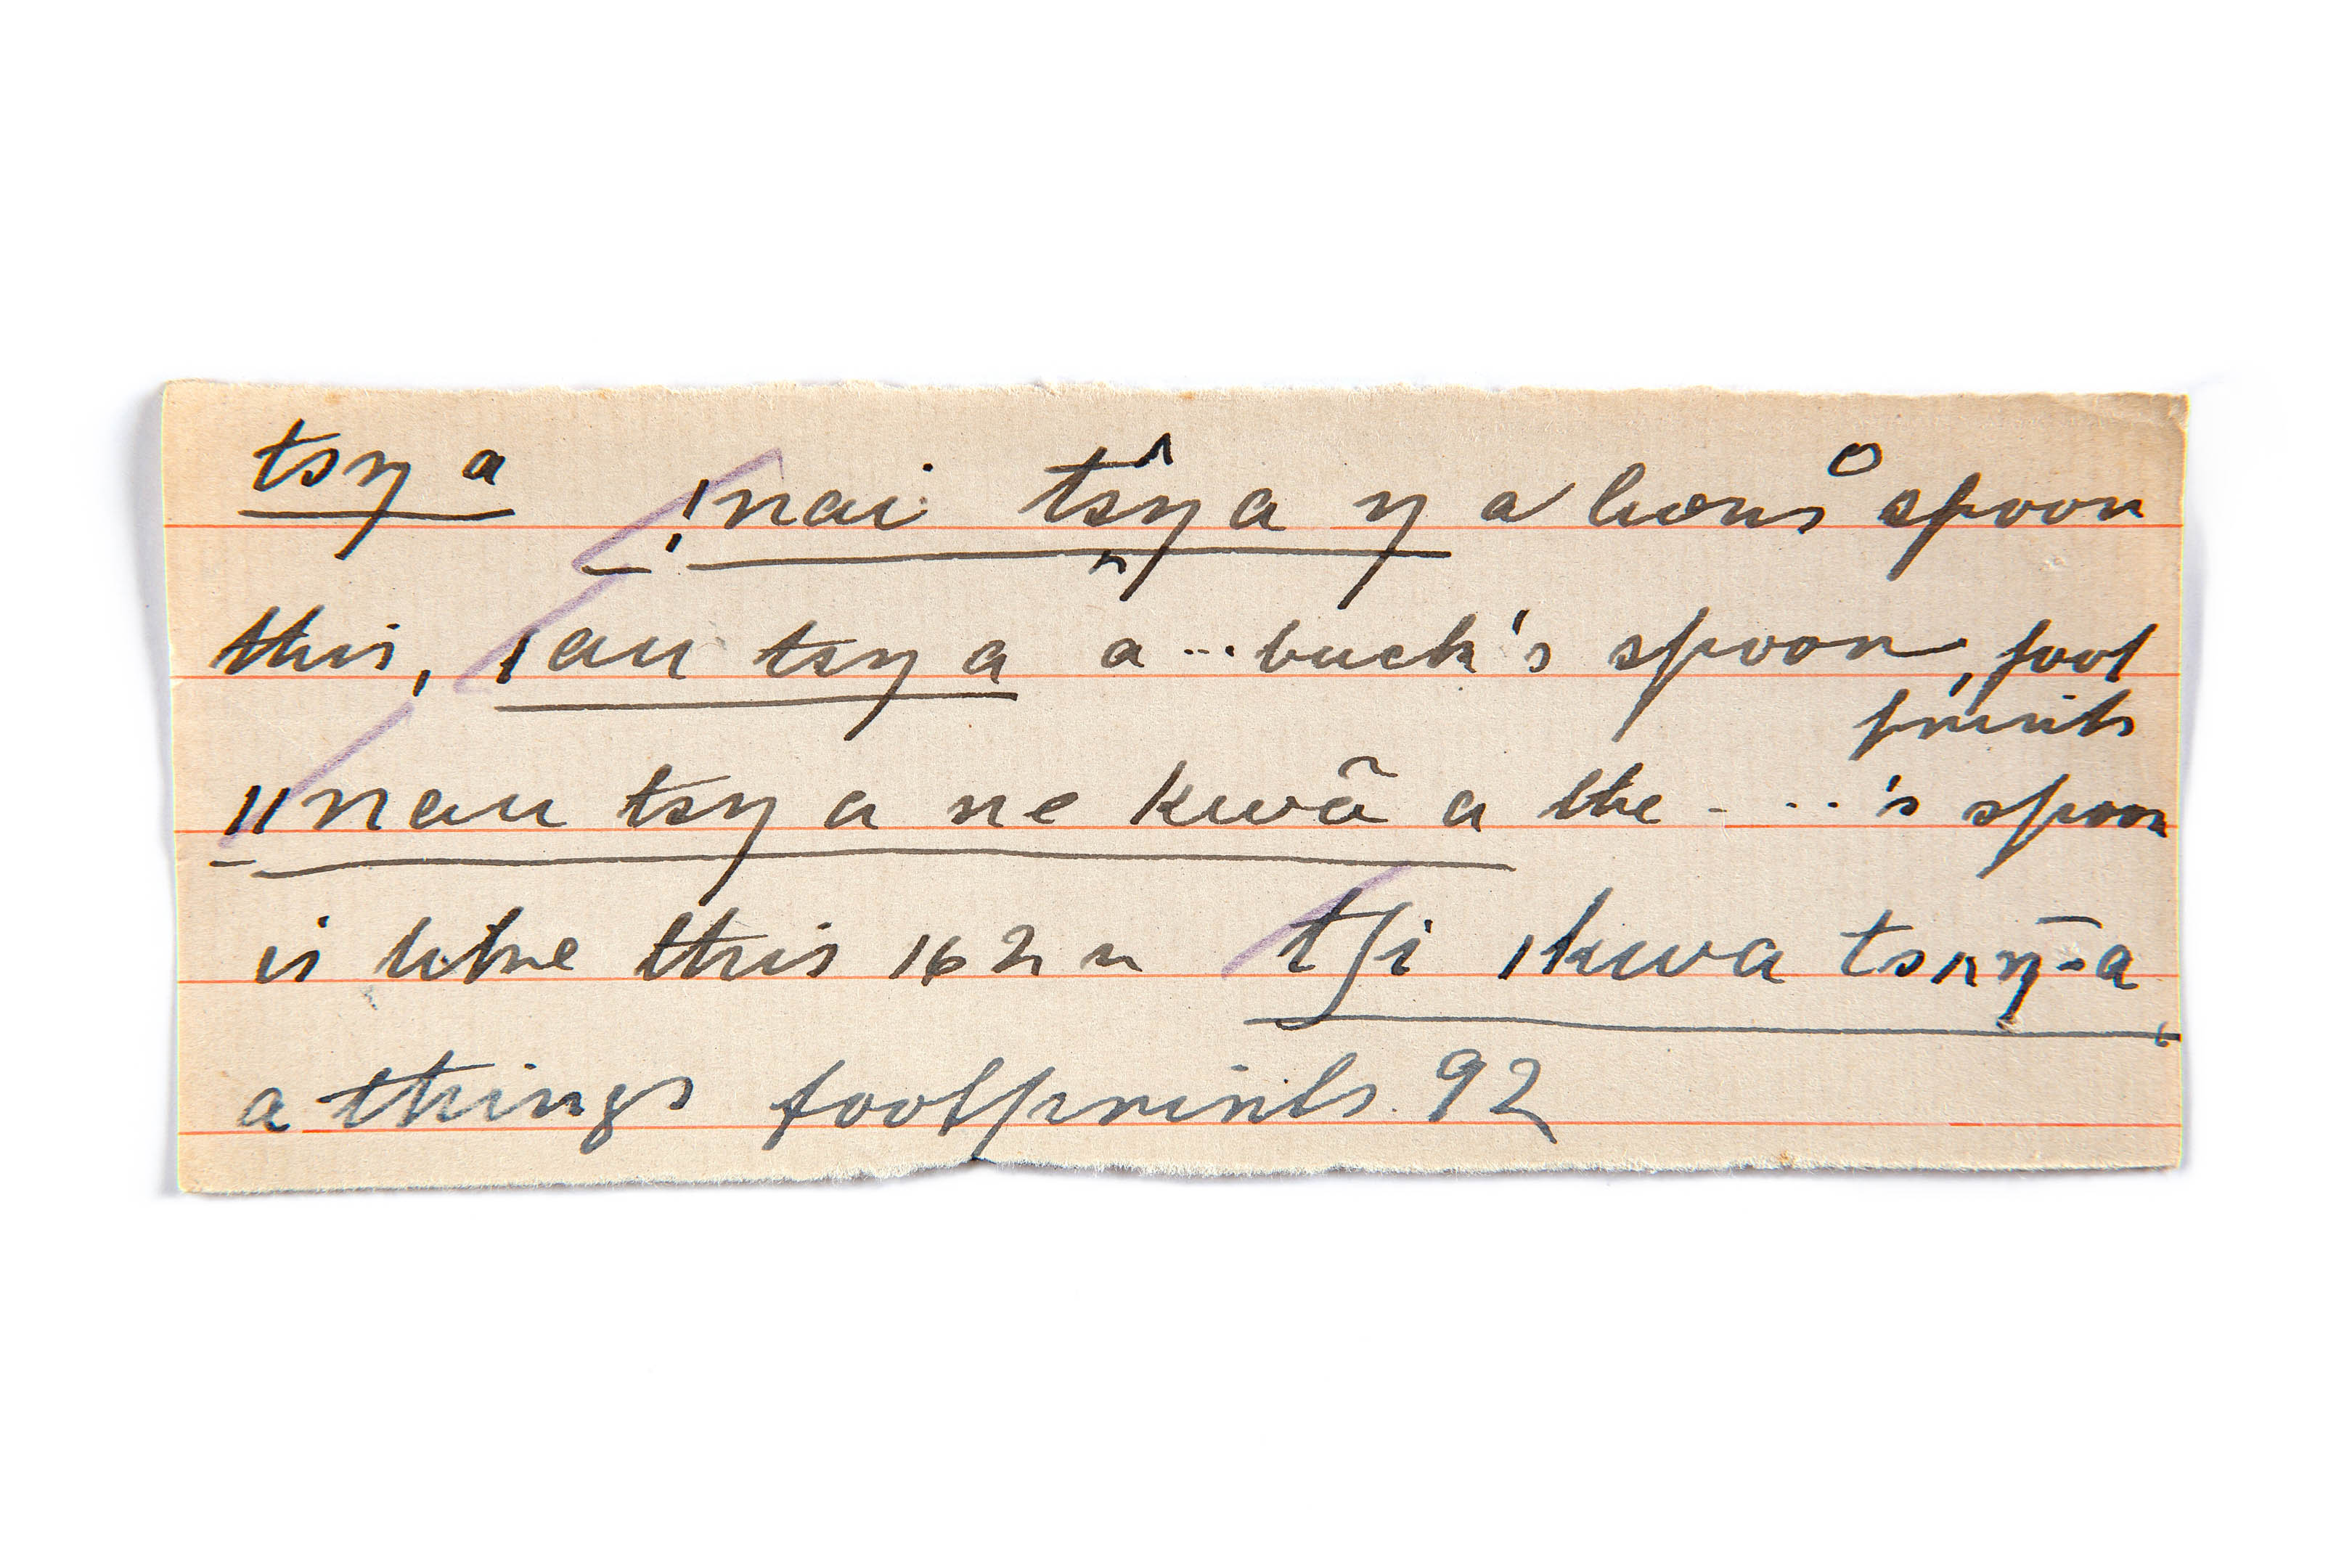 tsŋ a !nai tsŋ a ŋ a lions spoon
this, ǀau tsŋ a a ... buck's spoon, foot
prints
ǁnau tsŋ a ne kwã a the - ...'s spoon
is like this 162 tʃi ǀkwa tsŋ̄-a,
a things footprints. 92